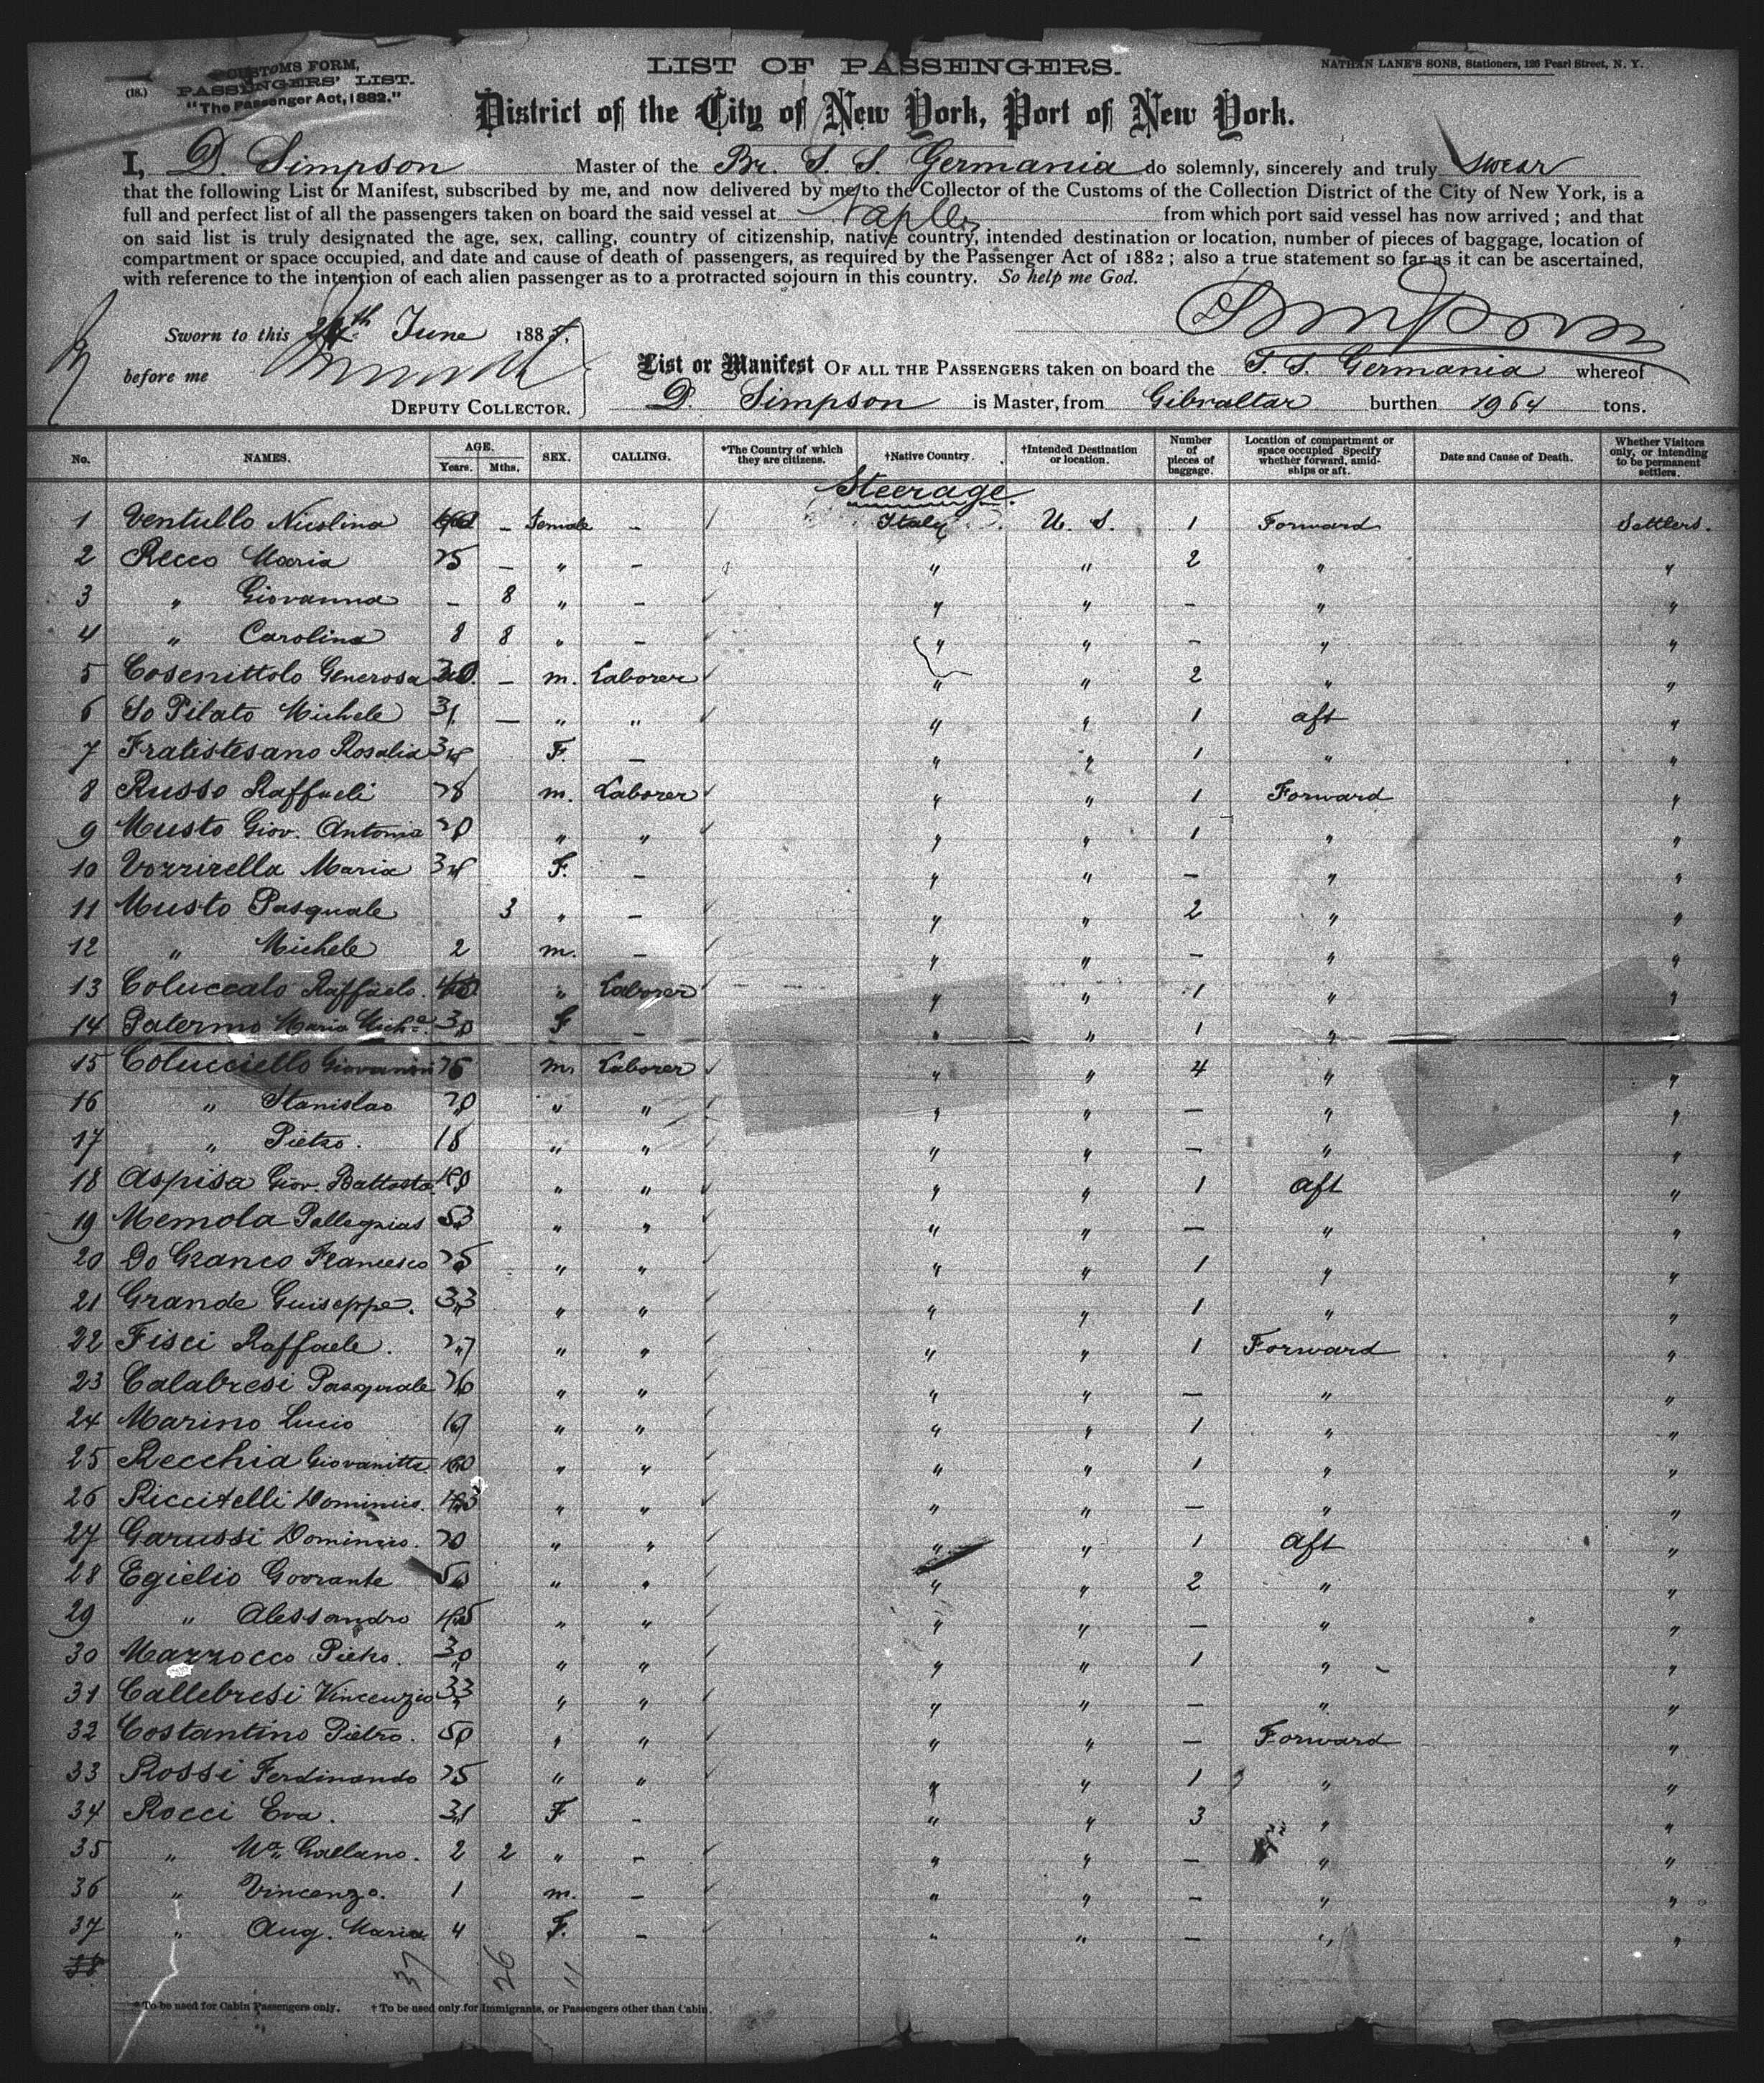 (18.) CUSTOMS FORM,
PASSENGERS' LIST.
"The Passenger Act, 1882."
LIST OF PASSENGERS.
NATHAN LANE'S SONS, Stationers, 126 Pearl Street, N. Y.
District of the City of New York, Port of New York.
I, D. Simpson Master of the Br. S. S. Germania do solemnly, sincerely and truly swear
that the following List or Manifest, subscribed by me, and now delivered by me to the Collector of the Customs of the Collection District of the City of New York, is a
full and perfect list of all the passengers taken on board the said vessel at Naples from which port said vessel has now arrived; and that
on said list is truly designated the age, sex, calling, country of citizenship, native country, intended destination or location, number of pieces of baggage, location of
compartment or space occupied, and date and cause of death of passengers, as required by the Passenger Act of 1882; also a true statement so far as it can be ascertained,
with reference to the intention of each alien passenger as to a protracted sojourn in this country. So help me God.
D Simpson
Sworn to this th June 188
before me
DEPUTY COLLECTOR.
List or Manifest OF ALL THE PASSENGERS taken on board the S. S. Germania whereof
D. Simpson is Master, from Gibraltar burthen 1964 tons.
No. NAMES. AGE. Years. Mths. SEX. CALLING. *The Country of which they are citizens. †Native Country. †Intended Destination or location. Number of pieces of baggage. Location of compartment or space occupied Specify whether forward, amidships or aft. Date and Cause of Death. Whether Visitors only, or intending to be permanent settlers.
Steerage.
1 Ventullo Nicolina – Female – Italy U. S. 1 Forward Settlers.
2 Recco Maria 25 – " – " " 2 " "
3 " Giovanna – 8 " – " " – " "
4 " Carolina 8 8 " – " " – " "
5 Cosenittolo Generosa – m. Laborer " " 2 " "
6 So Pilato Michele 31 – " " " " 1 aft "
7 Fratistesano Rosalia F. – " " 1 " "
8 Russo Raffaeli 28 m. Laborer " " 1 Forward "
9 Musto Giov. Antonio 20 " " " " 1 " "
10 Vozzirella Maria F. – " " – " "
11 Musto Pasquale 3 " – " " 2 " "
12 " Michele 2 m. – " " – " "
13 Coluccalo Raffaelo. " Laborer " " 1 " "
14 Palermo Maria Miche. 30 F – " " 1 " "
15 Colucciello Giovanni m. Laborer " " 4 " "
16 " Stanislao 20 " " " " – " "
17 " Pietro. 18 " " " " – " "
18 Aspisa Giov. Battosta 40 " " " " 1 aft "
19 Memola Pellegrias 53 " " " " – " "
20 Do Granco Francesco 25 " " " " 1 " "
21 Grande Guiseppe. 33 " " " " 1 " "
22 Fisci Raffaele. 27 " " " " 1 Forward "
23 Calabresi Pasquale 26 " " " " – " "
24 Marino Lucio " " " " 1 " "
25 Recchia Giovanitta " " " " 1 " "
26 Riccitelli Dominico. 43 " " " " – " "
27 Garussi Dominico. 20 " " " " 1 aft "
28 Egielio Goorante 50 " " " " 2 " "
29 " Alessandro 45 " " " " – " "
30 Mazzocco Pietro. 30 " " " " 1 " "
31 Callebresi Vincenzio 33 " " " " – " "
32 Costantino Pietro. 50 " " " " – Forward "
33 Rossi Ferdinando 25 " " " " 1 " "
34 Rocci Eva. 31 F – " " 3 " "
35 " Ma Gallano. 2 2 " – " " – " "
36 " Vincenzo. 1 m. – " " – " "
37 " Aug. Maria 4 F. – " " – " "
38
37 26 11
*To be used for Cabin Passengers only. † To be used only for Immigrants, or Passengers other than Cabin.